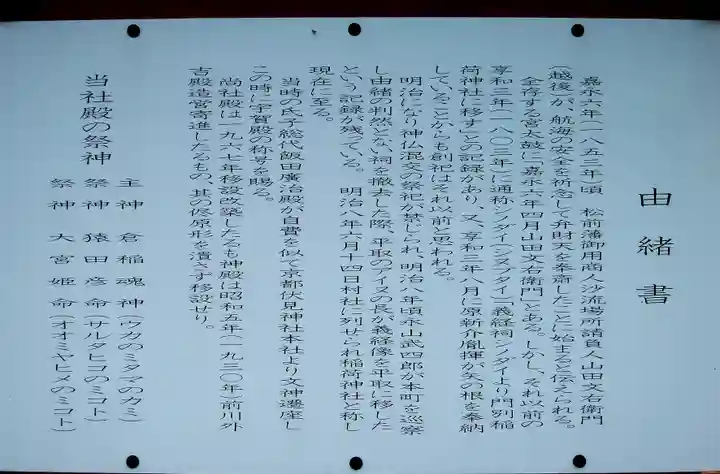 由緒書
嘉永六年(一八五三年)頃　松前藩御用商人沙流場所請負人山田文右衛門
(越後)が、航海の安全を祈念して弁財天を奉斎したことに始まると伝えられる。
全存する宮太鼓に「嘉永六年四月山田文右衛門」とある。しかし、それ以前の
享和二年(一八〇二年)に通称シノダイ(シスプダイ)「義経祠シノダイより門別稲
荷神社に移す」との記録があり、又、享和二年八月に原新介胤揮が矢の根を奉納
していることからも創祀はそれ以前と思われる。
明治になり神仏混交の祭祀が禁じられ、明治八年頃永山武四郎が本町を巡察
し由緒の判然としない祠を撤去した際、平取のアイヌの長が義経像を平取に移した
という記録が残っている。　明治八年六月十四日村社に列せられ稲荷神社と称し
現在に至る。
当時の氏子総代飯田廣治殿が自費を似て京都伏見神社本社より文神遷座し
この時に宇賀殿の称号を賜る。
尚社殿は一九六七年移設改築したるも神殿は昭和五年(一九三〇年)前川外
吉殿造営寄進したるもの、其の侭原形を潰さず移設せり。
当社殿の祭神
主神　倉稲魂神(ウカのミタマのカミ)
祭神　猿田彦命(サルタヒコのミコト)
祭神　大宮姫命(オオミヤヒメのミコト)